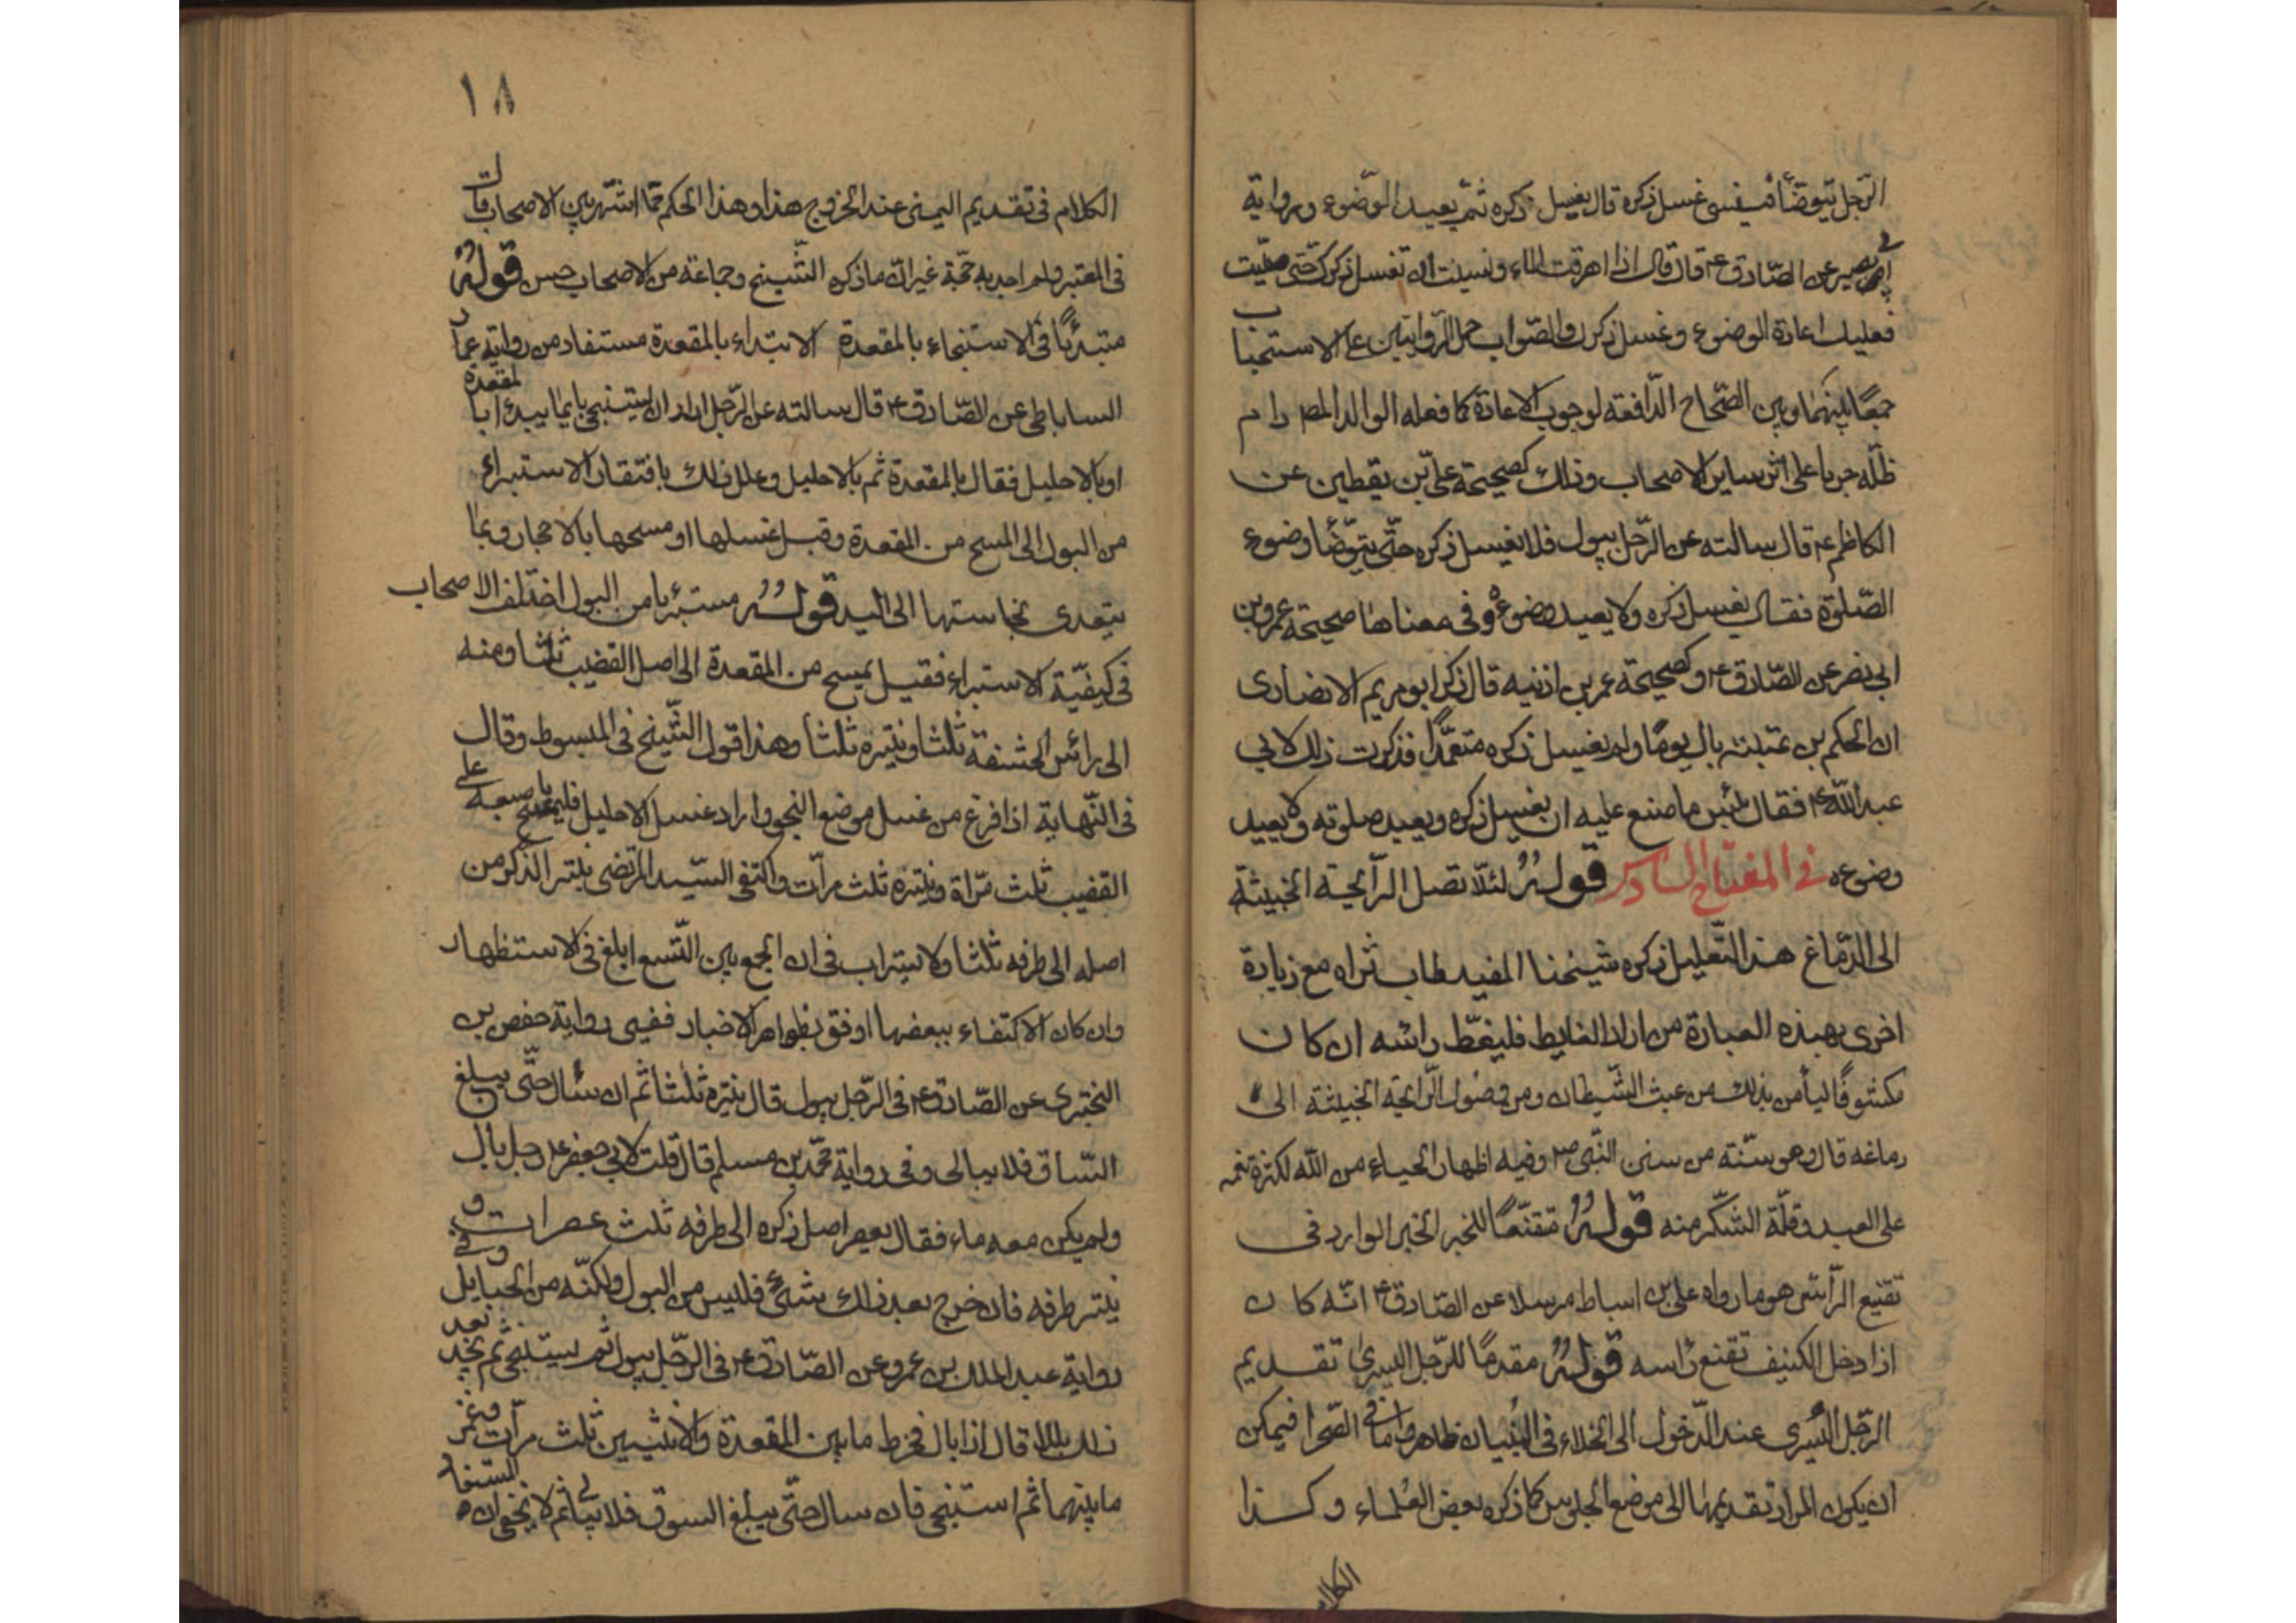 الرّجل يتوضّأ فينسى غسل ذكره قال يغسل ذكره ثم يعيد الوضوء ورواية
ابي بصير عن الصّادق ع قال قال اذا اهرقت الماء ونسيت ان تغسل ذكرك حتّى صلّيت
فعليك اعادة الوضوء وغسل ذكرك والصّواب حمل الرّوايتين على الاستحباب
جمعًا بينهما وبين الصّحاح الدّافعة لوجوب الاعادة كما فعله الوالد المص دام
ظلّه جريا على اثر ساير الاصحاب وذلك كصحيحة علي بن يقطين عن
الكاظم ع قال سالته عن الرّجل يبول فلا يغسل ذكره حتّى يتوضّأ وضوء
الصّلوة فقال يغسل ذكره ولا يعيد وضوءه وفى معناها صحيحة عمرو بن
ابى نصر عن الصّادق ع وكصحيحة عمر بن اذنيه قال ذكر ابو مريم الانصارى
ان الحكم بن عتيبة بال يومًا ولم يغسل ذكره متعمّدًا فذكرت ذلك لابي
عبد اللّه ع فقال بئس ما صنع عليه ان يغسل ذكره ويعيد صلوته ولا يعيد
وضوءه فى المفتاح السادس قوله لئلّا تصل الرّايحة الخبيثة
الى الدّماغ هذا التّعليل ذكره شيخنا المفيد طاب ثراه مع زيادة
اخرى بهذه العبارة من اراد الغايط فليغطّ راسه ان كان
مكشوفًا ليأمن بذلك من عبث الشّيطان ومن وصول الرّايحة الخبيثة الى
دماغه قال وهو سنّة من سنن النّبى ص وفيه اظهار الحياء من اللّه لكثرة نعمه
على العبد وقلّة الشّكر منه قوله متقنّعًا للخبر الخبر الوارد فى
تقنيع الرّأس هو ما رواه على بن اسباط مرسلا عن الصّادق ع انّه كان
اذا دخل الكنيف تقنع راسه قوله مقدمًا للرّجل اليسرى تقديم
الرّجل اليُسرى عند الدّخول الى الخلاء فى البُنيان ظاهر واما فى الصّحرا فيمكن
ان يكون المراد تقديمها الى موضع الجلوس كما ذكره بعض العلماء وكذا
الكلام
١٨
الكلام فى تقديم اليمنى عند الخروج هذا وهذا الحكم ممّا اشتهر بين الاصحاب قال
فى المعتبر ولم اجد به حجّة غير انّ ما ذكره الشّيخ وجماعة من الاصحاب حسن قوله
مبتدئًا فى الاستنجاء بالمقعدة الابتداء بالمقعدة مستفاد من رواية عمار
الساباطى عن الصّادق ع قال سالته عن الرّجل اذا اراد ان يستنجى بايما يبدأ ابالمقعدة
او بالاحليل فقال بالمقعدة ثم بالاحليل وعلل ذلك بافتقار الاستبراء
من البول الى المسح من المقعدة وقبل غسلها او مسحها بالاحجار ربما
يتعدى نجاستها الى اليد قوله مستبرئا من البول اختلف الاصحاب
فى كيفيّة الاستبراء فقيل يمسح من المقعدة الى اصل القضيب ثلثا ومنه
الى رأس الحشفة ثلثا وينتره ثلثا وهذا قول الشّيخ فى المبسوط وقال
فى النّهاية اذا فرغ من غسل موضع النجو واراد غسل الاحليل فليمسح باصبعه على
القضيب ثلث مرّاة وينتره ثلث مرآت واكتفى السّيد المرتضى بنتر الذكر من
اصله الى طرفه ثلثا ولا يستراب فى ان الجمع بين التّسع ابلغ فى الاستظهار
وان كان الاكتفاء ببعضها اوفق بظواهر الاخبار ففى رواية حفص بن
البخترى عن الصّادق ع فى الرّجل يبول قال ينتره ثلثا ثم ان سأل حتّى يبلغ
السّاق فلا يبالى وفى رواية محمّد بن مسلم قال قلت لابى جعفر ع رجل بال
ولم يكن معه ماء فقال يعصر اصل ذكره الى طرفه ثلث عصرات و
ينتر طرفه فان خرج بعد ذلك شئ فليس من البول ولكنّه من الحبايل وفى
رواية عبد الملك بن عمرو عن الصّادق ع فى الرّجل يبول ثم يستنجى ثم يجد بعد
ذلك بللا قال اذا بال فخرط ما بين المقعدة والانثيين ثلث مرآت وغمز
ما بينهما ثم استنجى فان سال حتّى يبلغ السوق فلا يبالى ثم لا يخفى ان المستفاد